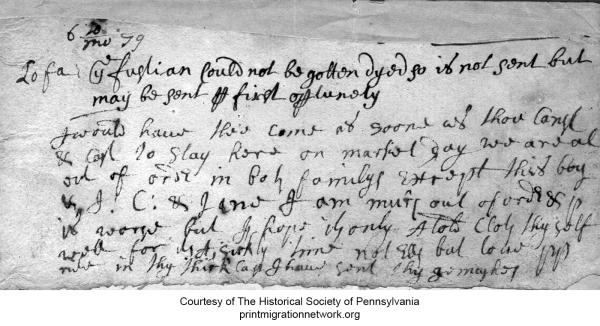 6 mo 79
Lo fa: ye fustian could not be gotten dyed so is not sent but
may be sent first oppertunety
I would have thee come as soone as thou canst
& to stay here on market day we are al
out of order in both familys except this boy
& J. C: & Jane I am much out of order &
is worse but I hope only a Cold thy self
well for its sickly time not but love
me in thy thick Cap I have sent thy
Courtesy of The Historical Society of Pennsylvania
printmigrationnetwork.org